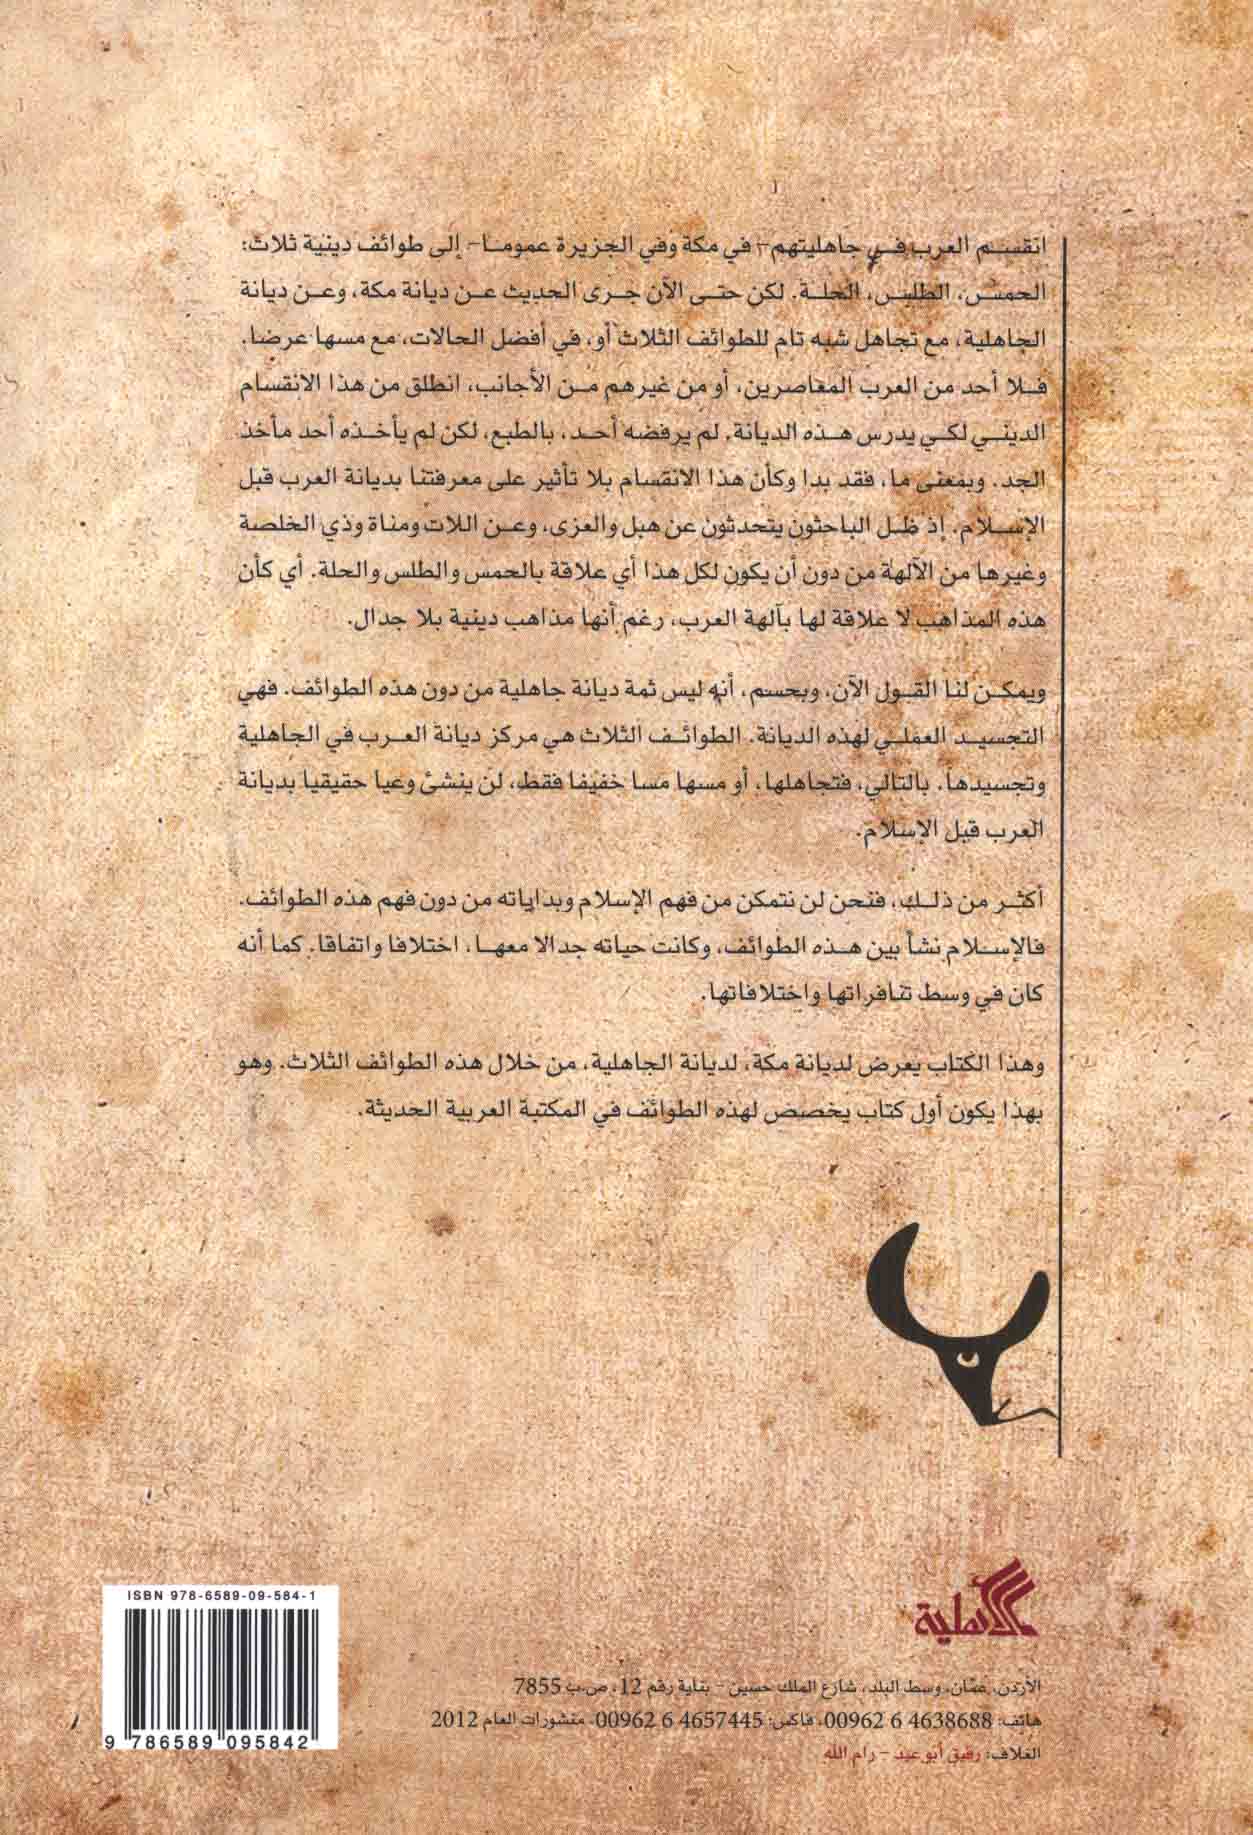 انقسم العرب في جاهليتهم- في مكة وفي الجزيرة عموما- إلى طوائف دينية ثلاث:
الحمس، الطلس، الحلة. لكن حتى الآن جرى الحديث عن ديانة مكة، وعن ديانة
الجاهلية، مع تجاهل شبه تام للطوائف الثلاث أو، في أفضل الحالات، مع مسها عرضا.
فلا أحد من العرب المعاصرين، أو من غيرهم من الأجانب، انطلق من هذا الانقسام
الديني لكي يدرس هذه الديانة. لم يرفضه أحد، بالطبع، لكن لم يأخذه أحد مأخذ
الجد. وبمعنى ما، فقد بدا وكأن هذا الانقسام بلا تأثير على معرفتنا بديانة العرب قبل
الإسلام. إذ ظل الباحثون يتحدثون عن هبل والعزى، وعن اللات ومناة وذي الخلصة
وغيرها من الآلهة من دون أن يكون لكل هذا أي علاقة بالحمس والطلس والحلة. أي كأن
هذه المذاهب لا علاقة لها بآلهة العرب، رغم أنها مذاهب دينية بلا جدال.
ويمكن لنا القول الآن، وبحسم، أنه ليس ثمة ديانة جاهلية من دون هذه الطوائف. فهي
التجسيد العملي لهذه الديانة. الطوائف الثلاث هي مركز ديانة العرب في الجاهلية
وتجسيدها. بالتالي، فتجاهلها، أو مسها مسا خفيفا فقط، لن ينشئ وعيا حقيقيا بديانة
العرب قبل الإسلام.
أكثر من ذلك، فنحن لن نتمكن من فهم الإسلام وبداياته من دون فهم هذه الطوائف.
فالإسلام نشأ بين هذه الطوائف، وكانت حياته جدالا معها. اختلافا واتفاقا. كما أنه
كان في وسط تنافراتها واختلافاتها.
وهذا الكتاب يعرض لديانة مكة، لديانة الجاهلية، من خلال هذه الطوائف الثلاث. وهو
بهذا يكون أول كتاب يخصص لهذه الطوائف في المكتبة العربية الحديثة.
الأهلية
الأردن، عمّان، وسط البلد، شارع الملك حسين - بناية رقم 12، ص.ب 7855
هاتف: 00962 6 4638688، فاكس: 00962 6 4657445، منشورات العام 2012
الغلاف: رفيق أبو عيد - رام الله
ISBN 978-6589-09-584-1
9 786589 095842